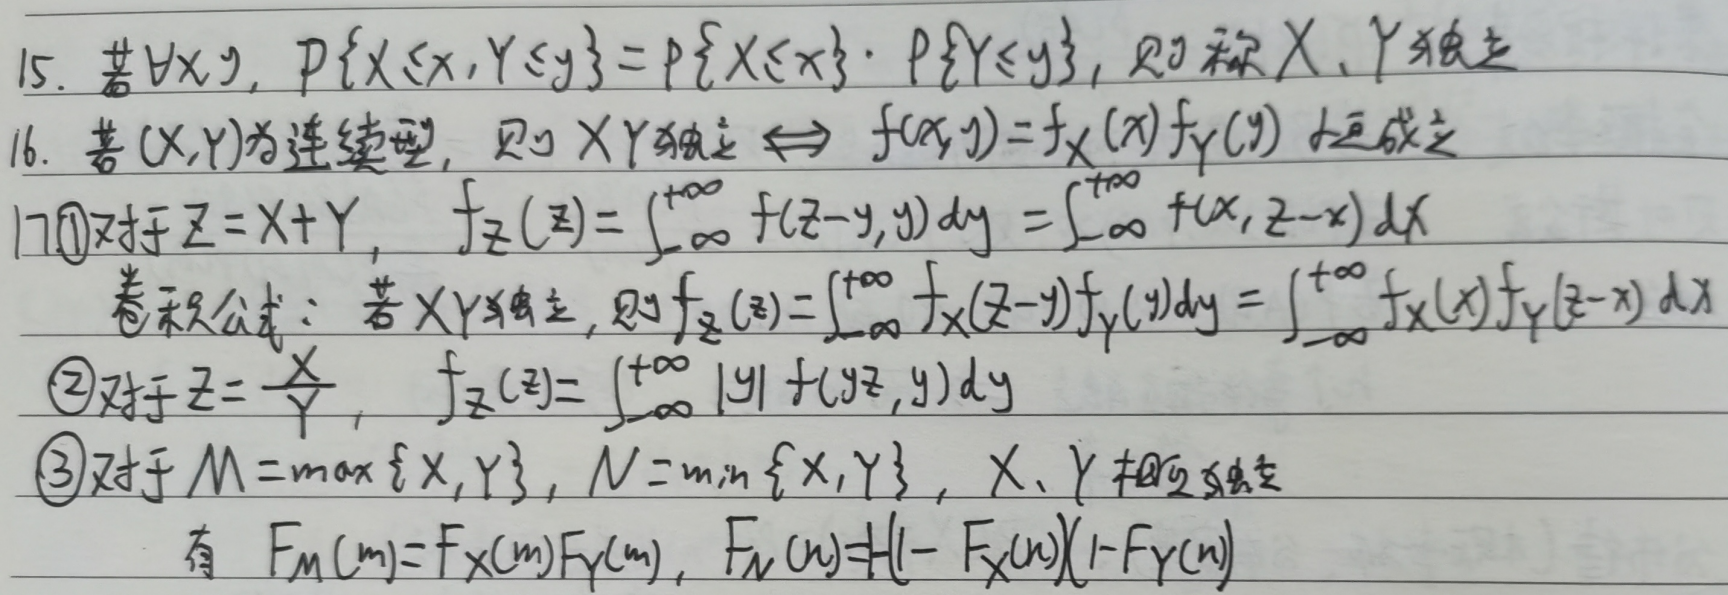 15. 若∀x y, P{X≤x, Y≤y}=P{X≤x}·P{Y≤y}, 则称X、Y独立
16. 若(X,Y)为连续型, 则XY独立⇔f(x,y)=f_X(x)f_Y(y)恒成立
17①对于Z=X+Y, f_Z(z)=∫_{-∞}^{+∞}f(z-y,y)dy=∫_{-∞}^{+∞}f(x,z-x)dx
卷积公式: 若XY独立, 则f_Z(z)=∫_{-∞}^{+∞}f_X(z-y)f_Y(y)dy=∫_{-∞}^{+∞}f_X(x)f_Y(z-x)dx
②对于Z=X/Y, f_Z(z)=∫_{-∞}^{+∞}|y|f(yz,y)dy
③对于M=max{X,Y}, N=min{X,Y}, X、Y相互独立
有 F_M(m)=F_X(m)F_Y(m), F_N(n)=1-(1-F_X(n))(1-F_Y(n))